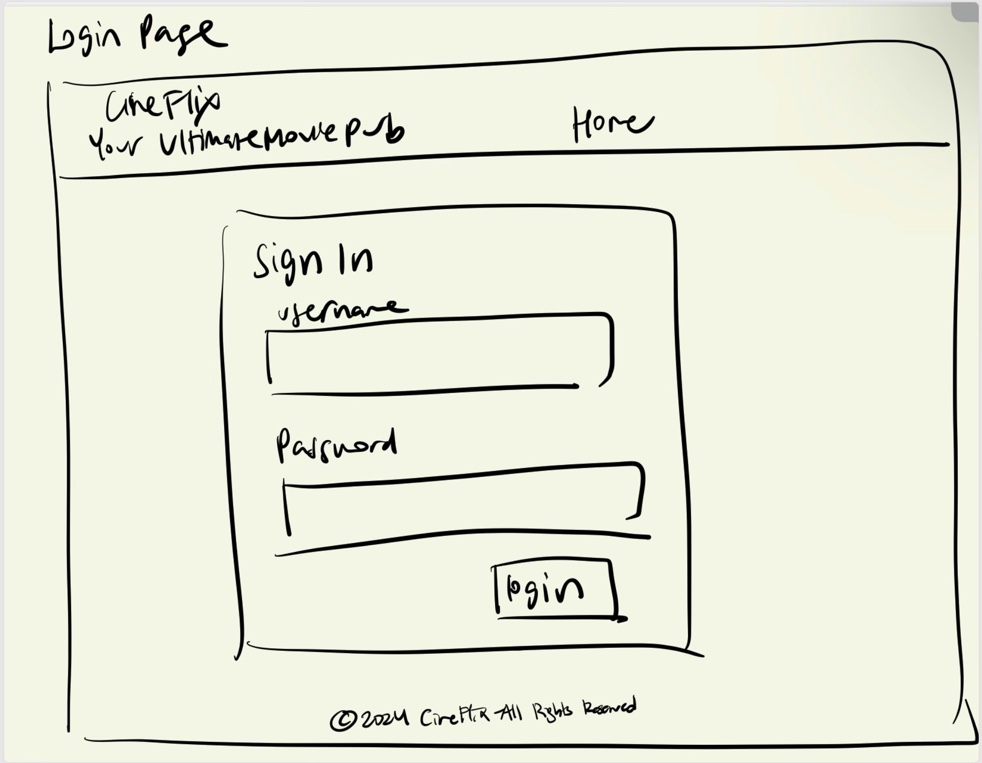 Login Page
CineFlix
Your Ultimate Movie Pub
Home
Sign In
username
Password
Login
©2024 CineFlix All Rights Reserved